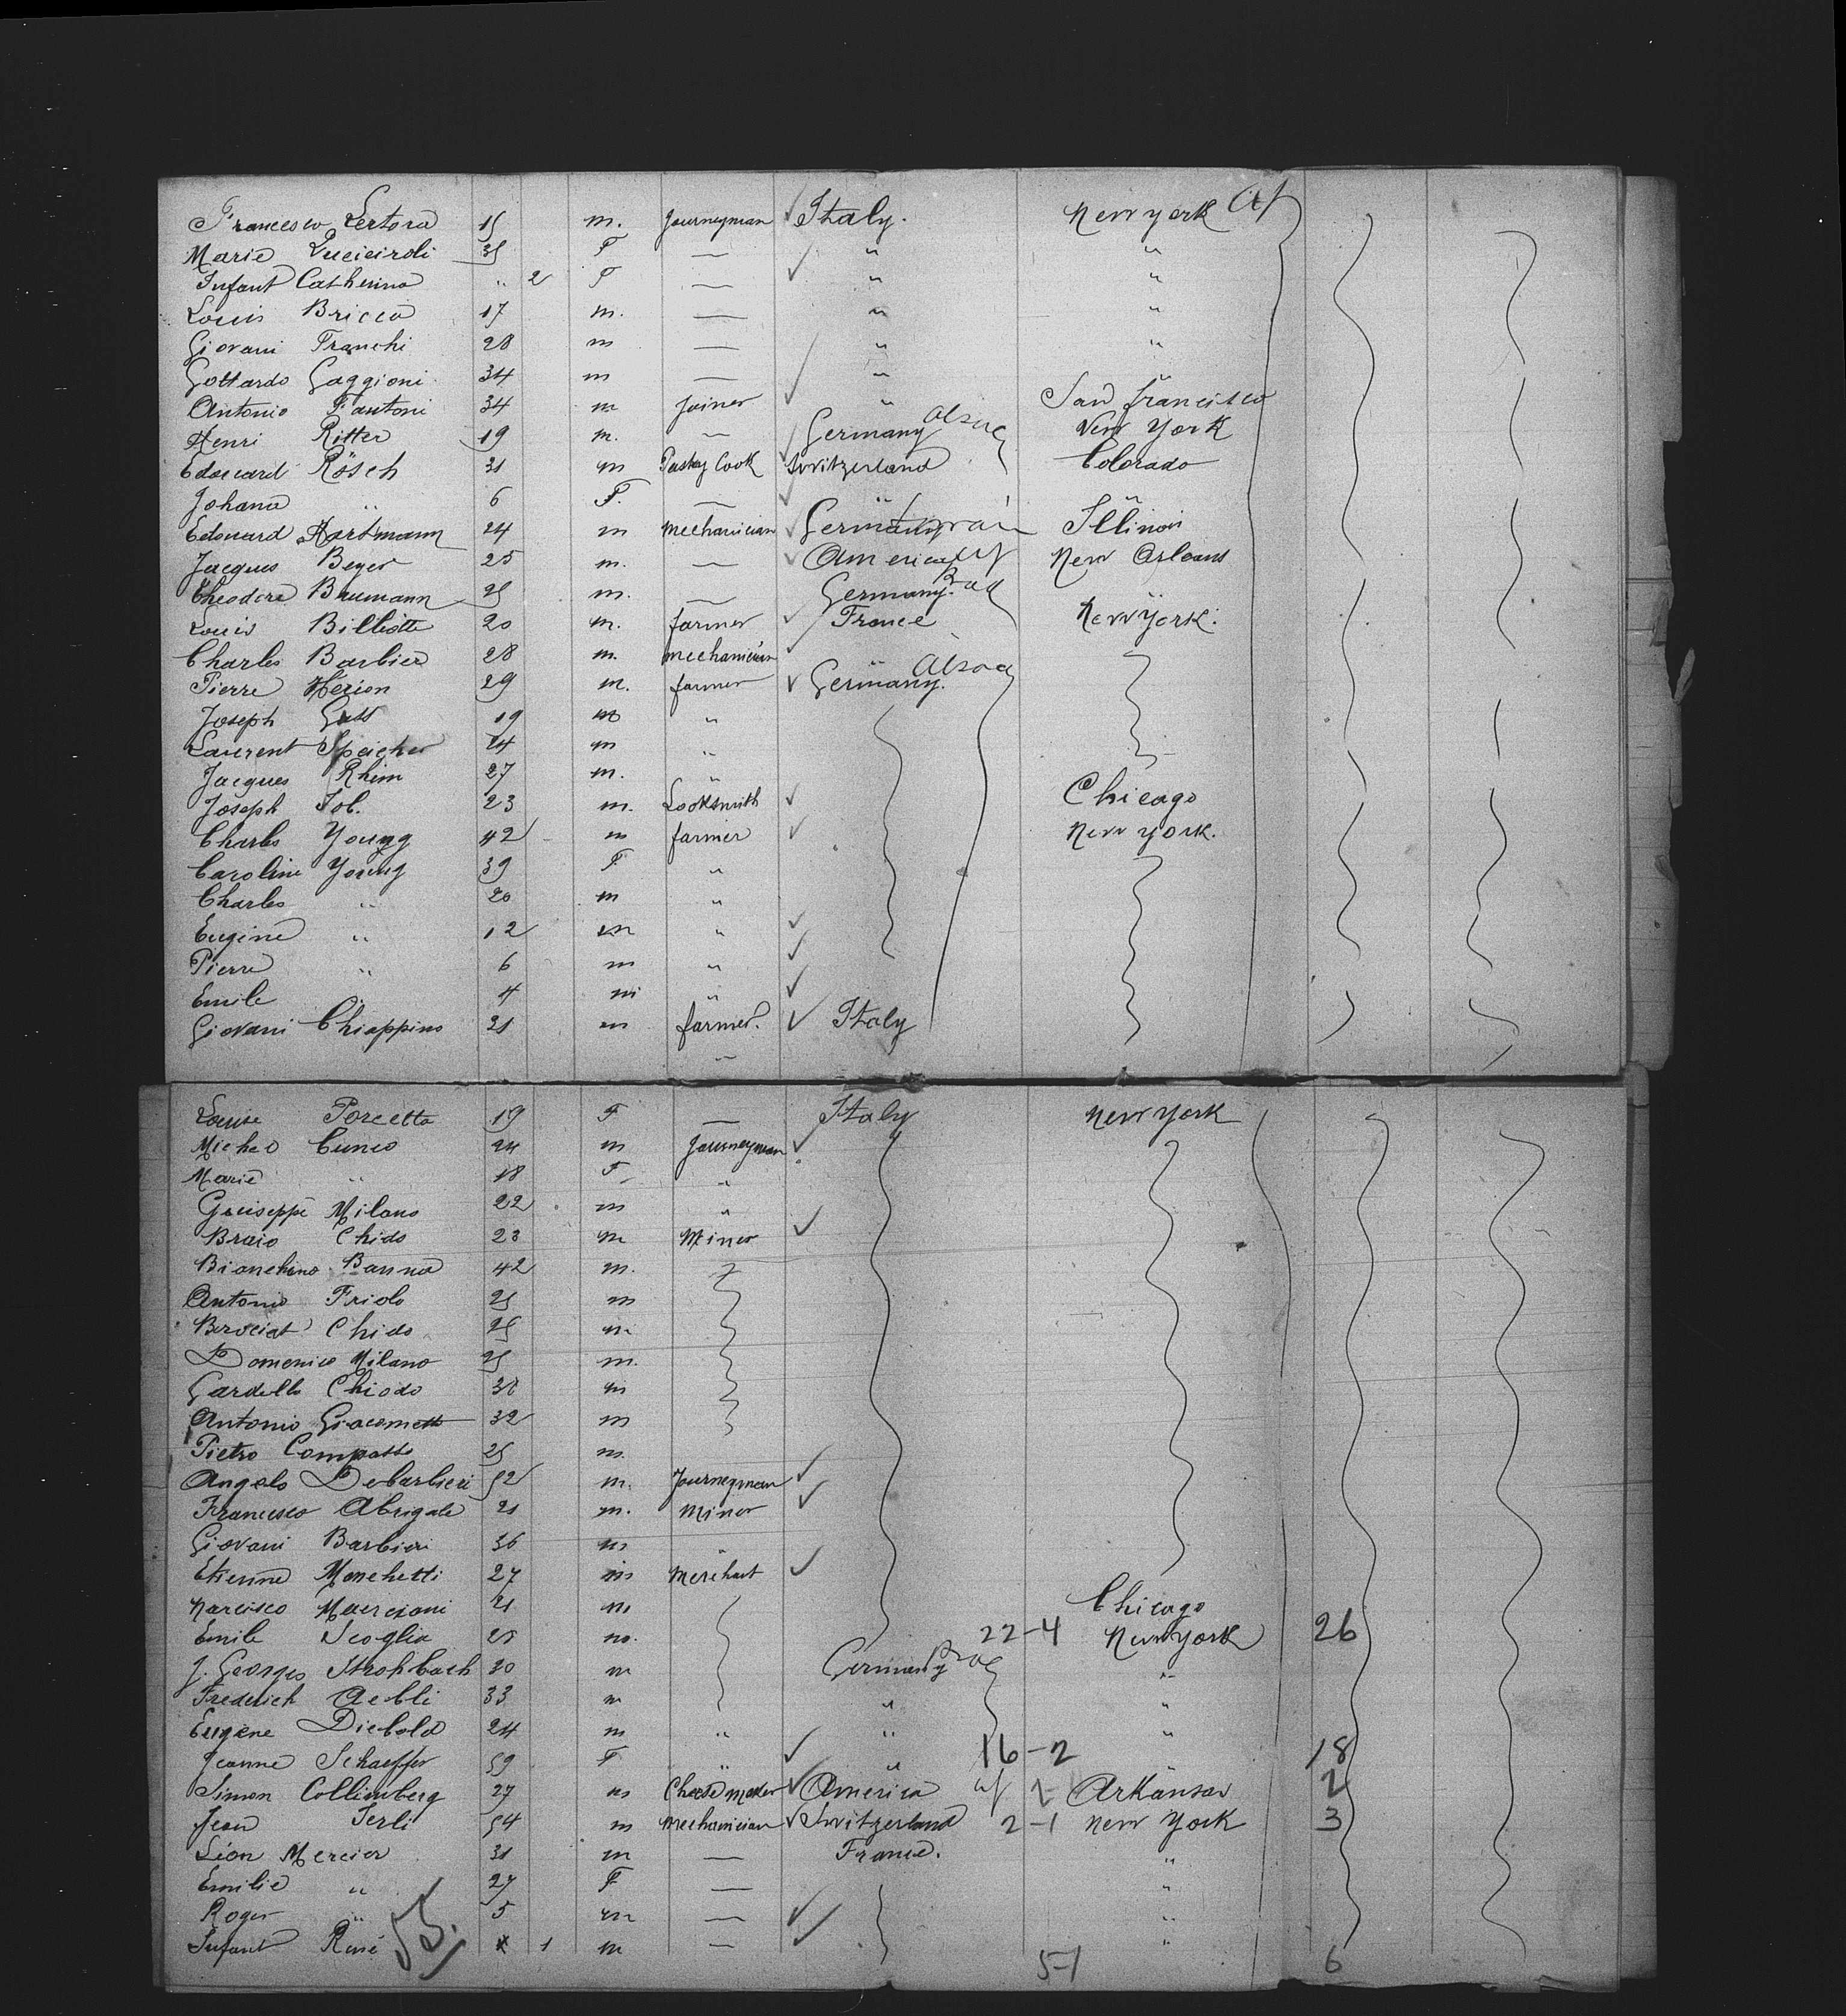 Francesco Lertora 15 m. Journeyman ✓ Italy. New York
Marie 35 F — " "
Infant Catherina " 2 F — ✓ " "
Louis Bricca 17 m. — " "
Giovani Franchi 28 m — " "
Gottardo Gaggioni 34 m — "
Antonio Fantoni 34 m Joiner ✓ " San francisco
Henri Ritter 19 m. — Germany Alsac New York
Edouard Rösch 31 m Pastry Cook Switzerland Colorado
Johana " 6 F. — ✓ " "
Edouard Hartmann 24 m mechanician ✓ Germany Illinois
Jacques Beyer 25 m. — ✓ America New Orleans
Theodore Baumann 25 m. — Germany. Bad "
Louis Billiotte 20 m. farmer ✓ France New York.
Charles Barbier 28 m. mechanician ✓ "
Pierre Herion 29 m. farmer ✓ Germany. Alsac
Joseph Gass 19 m "
Laurent Speicher 24 m "
Jacques Rhim 27 m. "
Joseph Job. 23 m. Locksmith ✓ Chicago
Charles Young 42 m farmer ✓ New York.
Caroline Young 39 F "
Charles " 20 m "
Eugine " 12 m " ✓
Pierre " 6 m " ✓
Emile " 4 m " ✓
Giovani Chiappino 21 m farmer. ✓ Italy
Louise Porcetta 19 F — Italy New York
Michel Cuneo 24 m Journeyman ✓
Marie " 18 F "
Guiseppe Milano 22 m "
Braio Chido 23 m Miner ✓
Bianchino Banna 42 m.
Antonio Friolo 25 m
Brociat Chido 25 m
Domenico Milano 25 m.
Gardello Chiodo 38 m
Antonio Giacometti 32 m
Pietro Compasso 25 m.
Angelo Debarbieri 52 m. Journeyman ✓
Francesco Abrigale 21 m. Miner ✓
Giovani Barbieri 36 m "
Etienne Manchetti 27 m Merchant ✓
Narcisco Marciani 21 m Chicago
Emile Scoglia 25 m. 22-4 New York 26
J. Georges Strohbach 20 m Germany Bad "
Frederich Aebli 33 m " "
Eugene Diebold 24 m " " "
Jeanne Schaeffer 59 F " ✓ " 16-2 " 18
Simon Collimberg 27 m Cheese maker ✓ America Arkansas 2
Jean Terli 54 m mechanician ✓ Switzerland 2-1 New York 3
Léon Mercier 31 m — France. "
Emilie " 27 F — "
Roger " 5 m — ✓ "
Infant René 1 m — ✓ "
55. 5-1 6